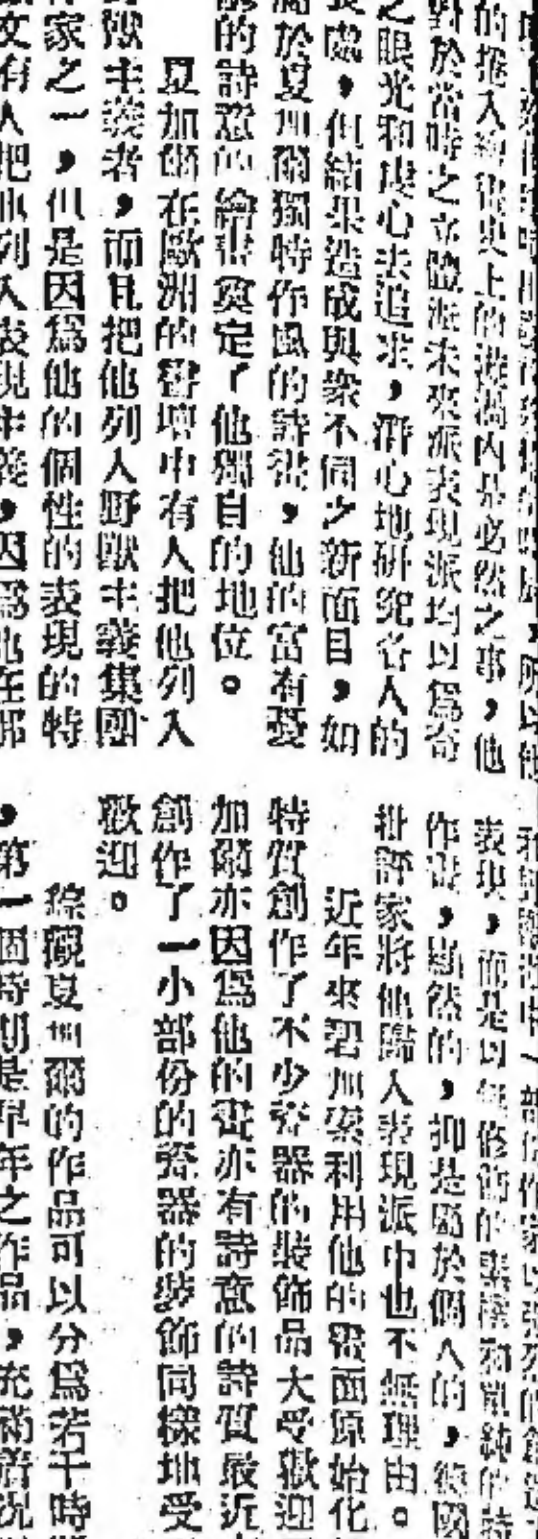 的推入藝術史上的漩渦內是必然之事，他
對於當時之立體派未來派表現派均以爲奇
之眼光和虛心去追求，潛心地研究各人的
長處，但結果造成與衆不同之新面目，如
屬於夏加爾獨特作風的詩畫，他的富有愛
的詩意的繪畫奠定了他獨自的地位。
夏加爾在歐洲的畫壇中有人把他列入
野獸主義者，而且把他列入野獸主義集團
作家之一，但是因爲他的個性的表現的特
有人把他列入表現主義，因爲他在那
表現，而是以無修飾的素樸和單純的詩
作畫，顯然的，抑是屬於個人的，德國
批評家將他歸入表現派中也不無理由。
近年來畢加索利用他的畫面原始化
特質創作了不少瓷器的裝飾品大受歡迎
加爾亦因爲他的畫亦有詩意的詩質最近
創作了一小部份的瓷器的裝飾同樣地受
歡迎。
綜觀夏加爾的作品可以分爲若干時
，第一個時期是早年之作品，充滿着